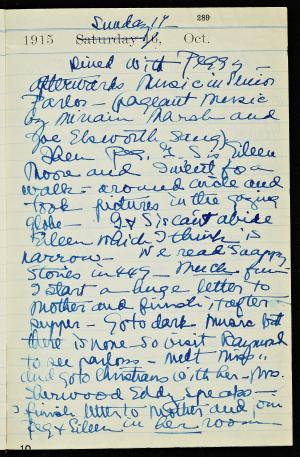 Sunday 17
289
1915 Saturday 16, Oct.
Dined with Peggy -
afterwards music in Senior
Parlor - pageant music
by Miriam Marsh and
Joe Elsworth sang.
Then Peg, G, S's, Eileen
Moore and I went for a
walk - around circle and
took pictures in the gazing
globe - G & S's can't abide
Eileen which I think is
narrow - We read Snappy
Stories in 449 - Much fun -
I start a huge letter to
Mother and finish it after
supper - Go to dark music but
there is none so visit Raymond
to see parlors - meet Miss
and go to Christians with her - Mrs.
Sherwood Eddy speaks -
finish letter to Mother and join
Peg & Eileen in her room
10